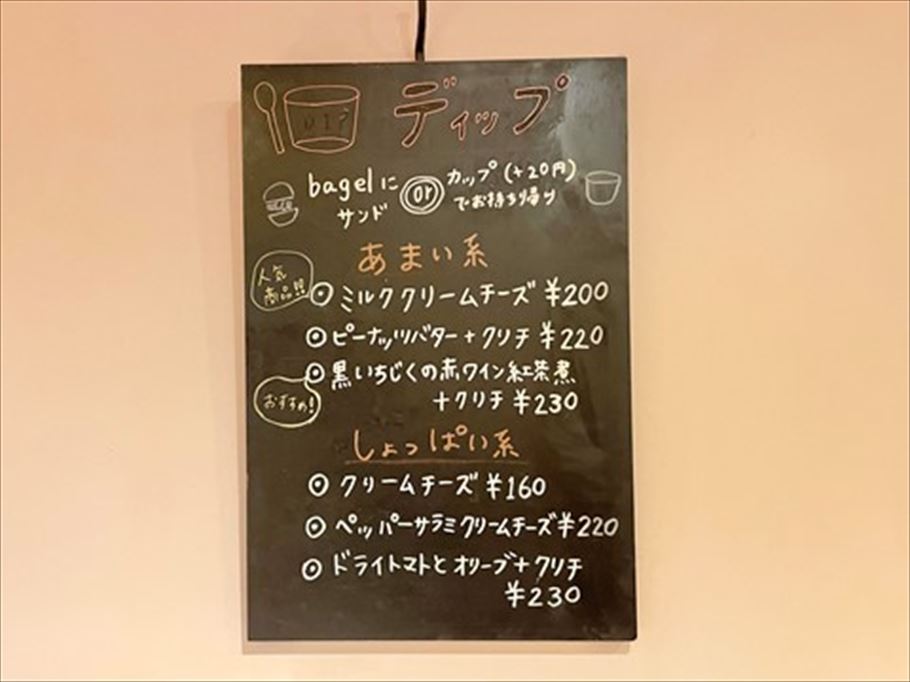 DIP
ディップ
bagelに
サンド
or
カップ(+20円)
でお持ち帰り
あまい系
人気
商品!!
◎ミルククリームチーズ ¥200
◎ピーナッツバター+クリチ ¥220
◎黒いちじくの赤ワイン紅茶煮
+クリチ ¥230
おすすめ!
しょっぱい系
◎クリームチーズ ¥160
◎ペッパーサラミクリームチーズ ¥220
◎ドライトマトとオリーブ+クリチ
¥230